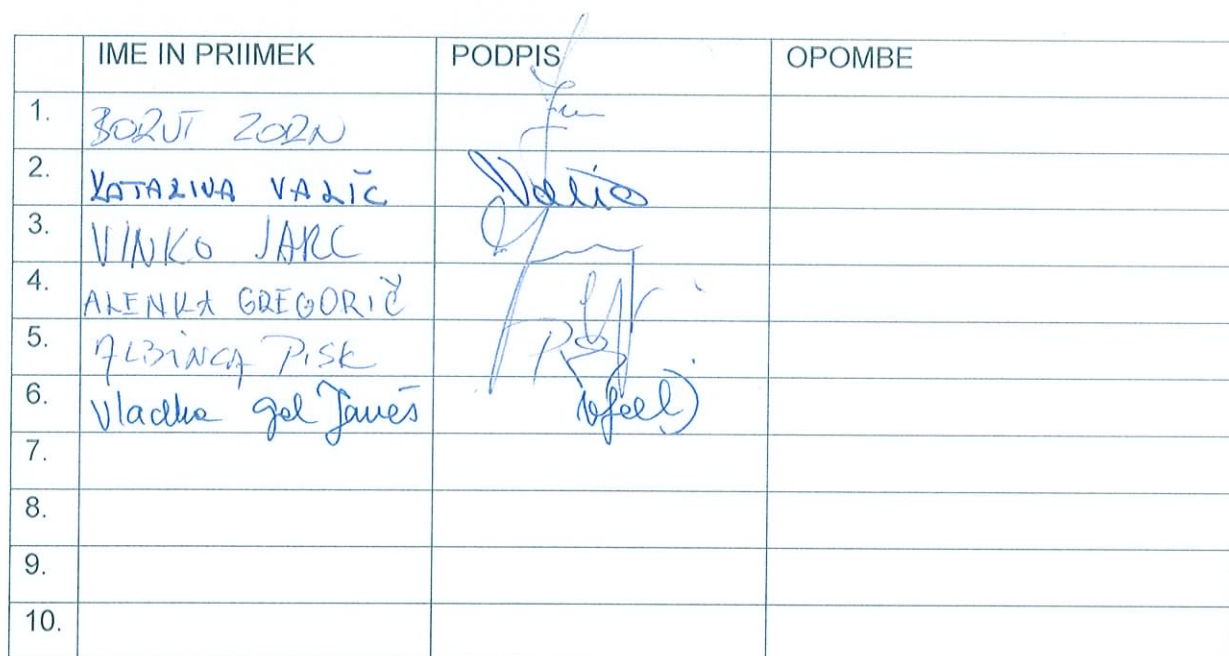 IME IN PRIIMEK PODPIS OPOMBE
1. BORUT ZORN
2. KATARINA VALIČ Valič
3. VINKO JARC
4. ALENKA GREGORIČ
5. ALBINCA PISK
6. Vladka Gal Janeš
7.
8.
9.
10.